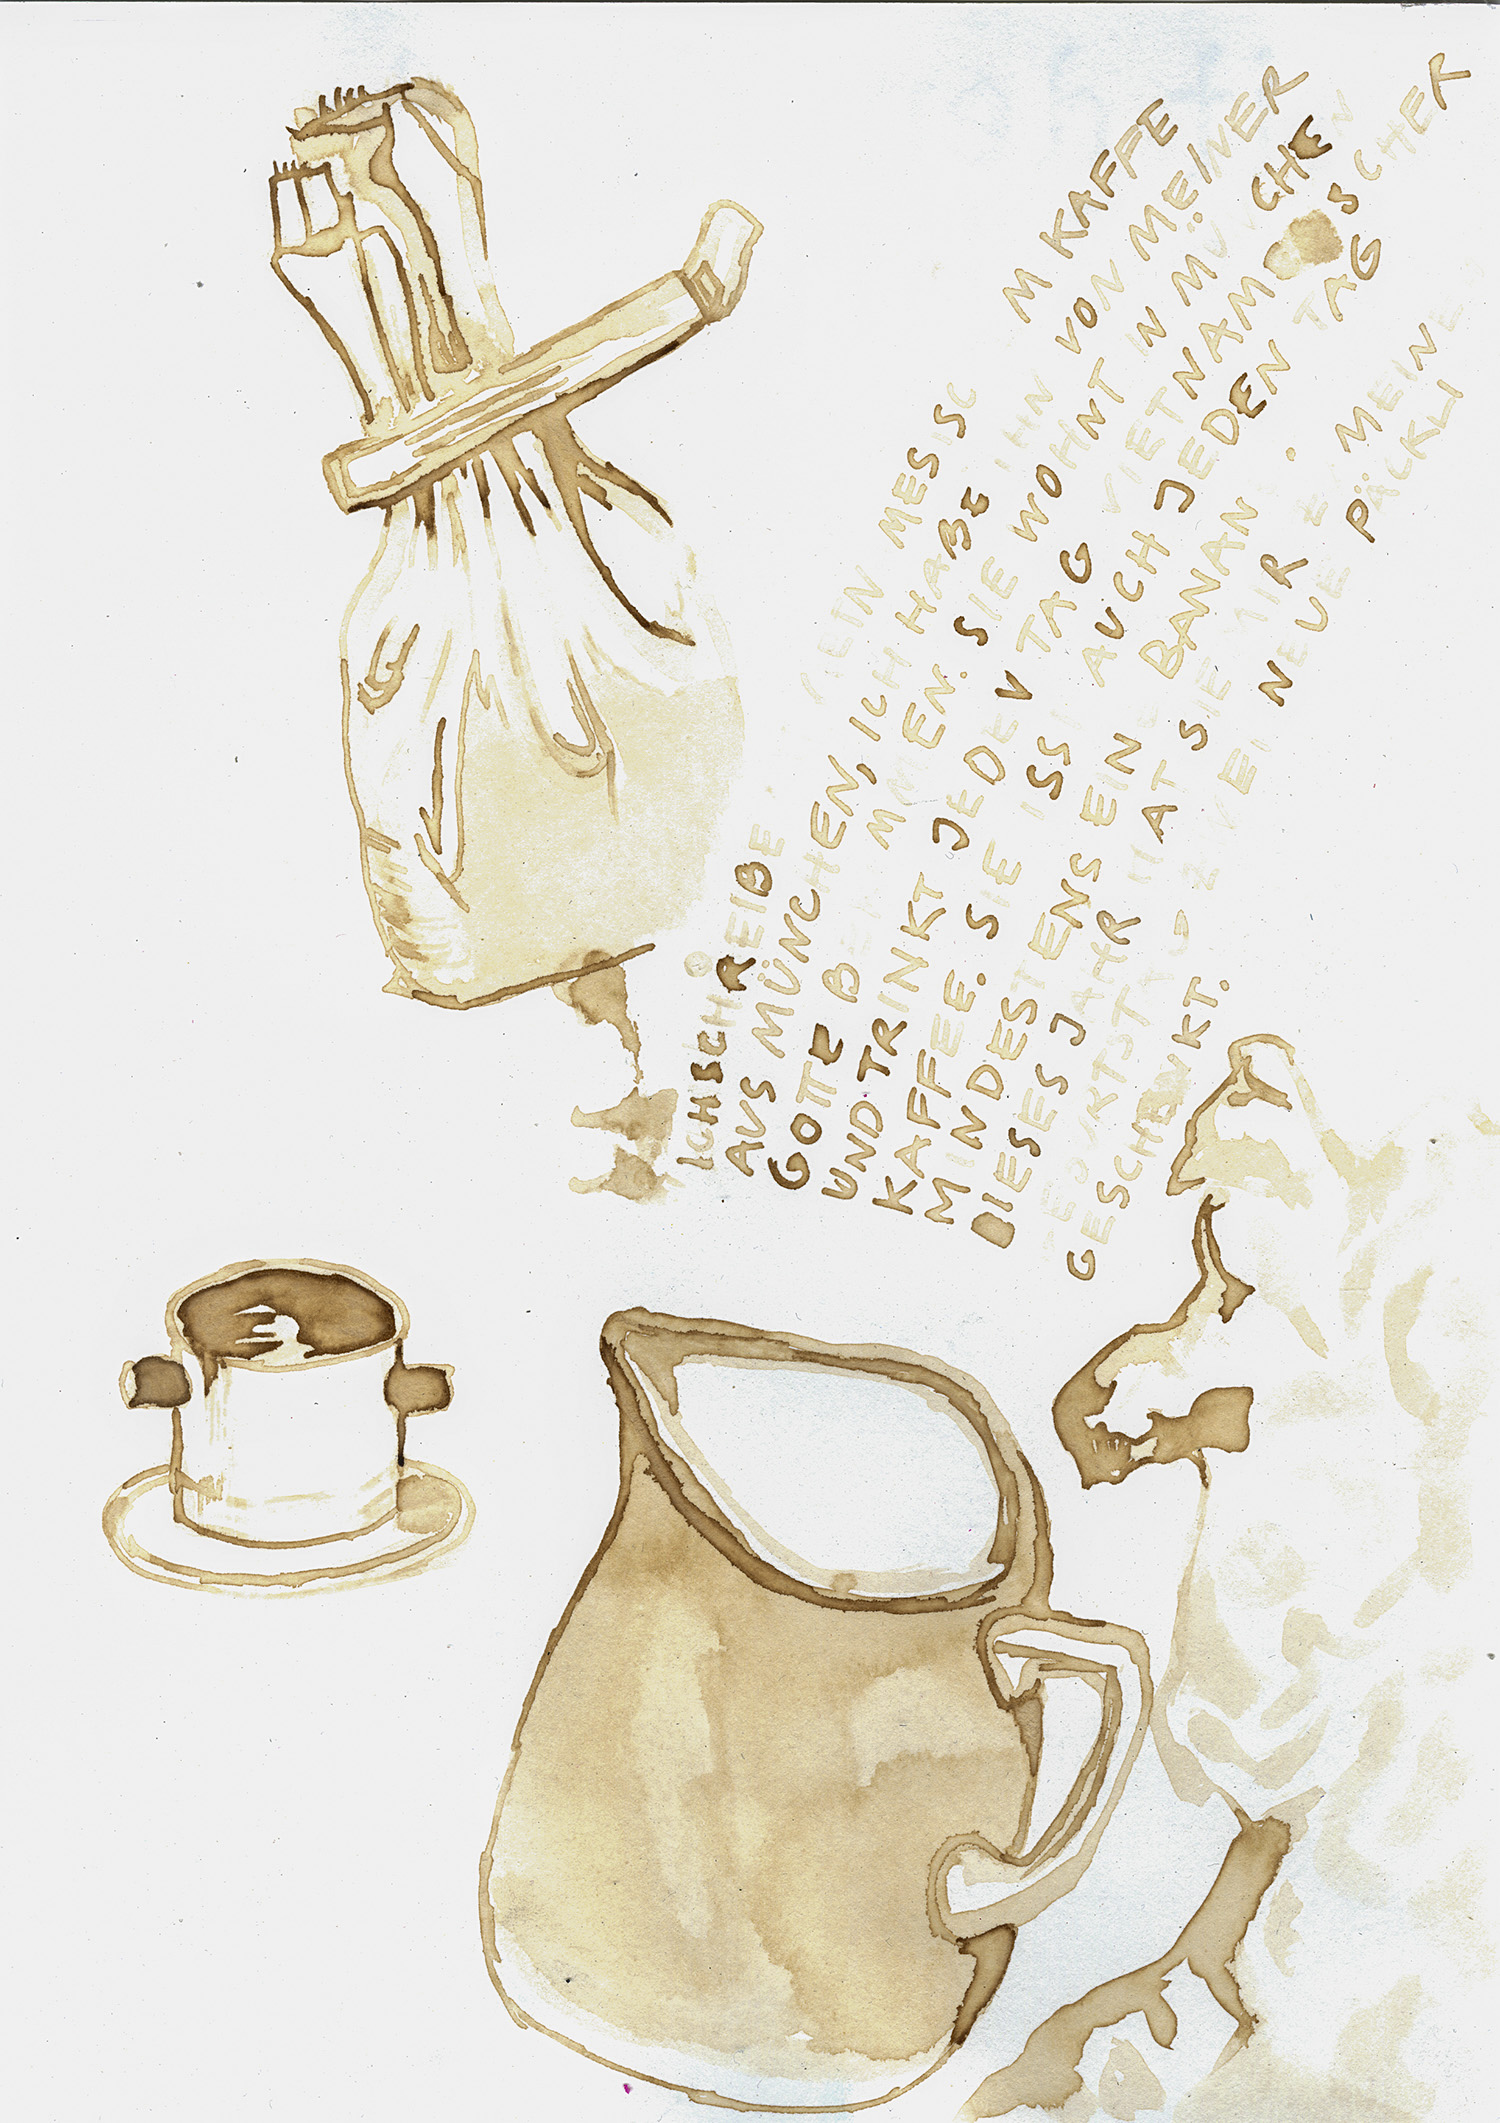 ICH SCHREIBE EIN MESISC M KAFFE
AUS MÜNCHEN, ICH HABE IHN VON MEINER
GOTTE B MMEN. SIE WOHNT IN MÜNCHEN
UND TRINKT JEDEN TAG VIETNAM SCHER
KAFFEE. SIE ISST AUCH JEDEN TAG
MINDESTENS EIN BANAN.
DIESES JAHR HAT SIE MIR MEINE
ZWEI NEUE PÄCKLI
GESCHENKT.